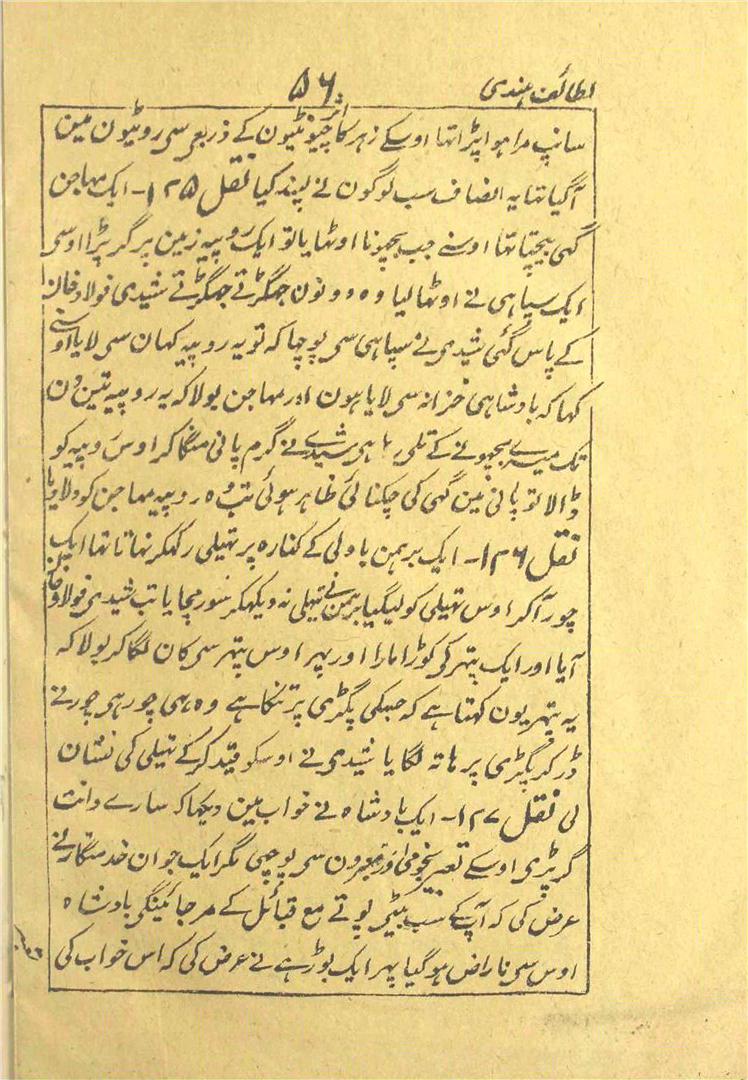 لطائف ہندی
۵۶
سانپ مرا ہوا پڑا تھا اوسکے زہر کا اثر چیونٹیون کے ذریعہ سی روٹیون مین
آگیا تھا یہ انصاف سب لوگون نے پسند کیا نقل ۱۲۵۔ ایک مہاجن
گہی بیچتا تھا اوسنے جب بچھونا اوٹھایا تو ایک روپیہ زمین پر گر پڑا اوسی
ایک سپاہی نے اوٹھا لیا وہ دونون جھگڑتے جھگڑتے شیدی فولاد خان
کے پاس گئی شیدی نے سپاہی سی پوچھا کہ تو یہ روپیہ کہان سی لایا اوسنے
کہا کہ بادشاہی خزانہ سی لایا ہون اور مہاجن بولا کہ یہ روپیہ تین دن
تک میرے بچھونے کے تلی رہا ہی شیدے نے گرم پانی منگا کر اوس روپیہ کو
ڈالا تو پانی مین گہی کی چکنائی ظاہر ہوئی تب وہ روپیہ مہاجن کو دلا دیا
نقل ۱۲۶۔ ایک برہمن باولی کے کنارہ پر تھیلی رکھکر نہاتا تھا ایک
چور آکر اوس تھیلی کو لیگیا برہمن نے تھیلی نہ دیکھکر شور مچایا تب شیدی فولاد خان
آیا اور ایک پتھر کی کوڑا مارا اور پھر اوس پتھر سی کان لگا کر بولا کہ
یہ پتھر یون کہتا ہے کہ جسکی پگڑی پر تنکا ہے وہ ہی چور ہی چور نے
ڈر کر پگڑی پر ہاتھ لگایا شیدی نے اوسکو قید کر کے تھیلی کی نشان
لی نقل ۱۲۷۔ ایک بادشاہ نے خواب مین دیکھا کہ سارے دانت
گر پڑی اوسکے تعبیر نجومی اور معبرون سی پوچھی مگر ایک جوان خدمتگار نے
عرض کی کہ آپ کے سب بیٹی پوتے مع قبائل کے مر جائینگی بادشاہ
اوس سی ناراض ہوگیا پھر ایک بوڑھے نے عرض کی کہ اس خواب کی